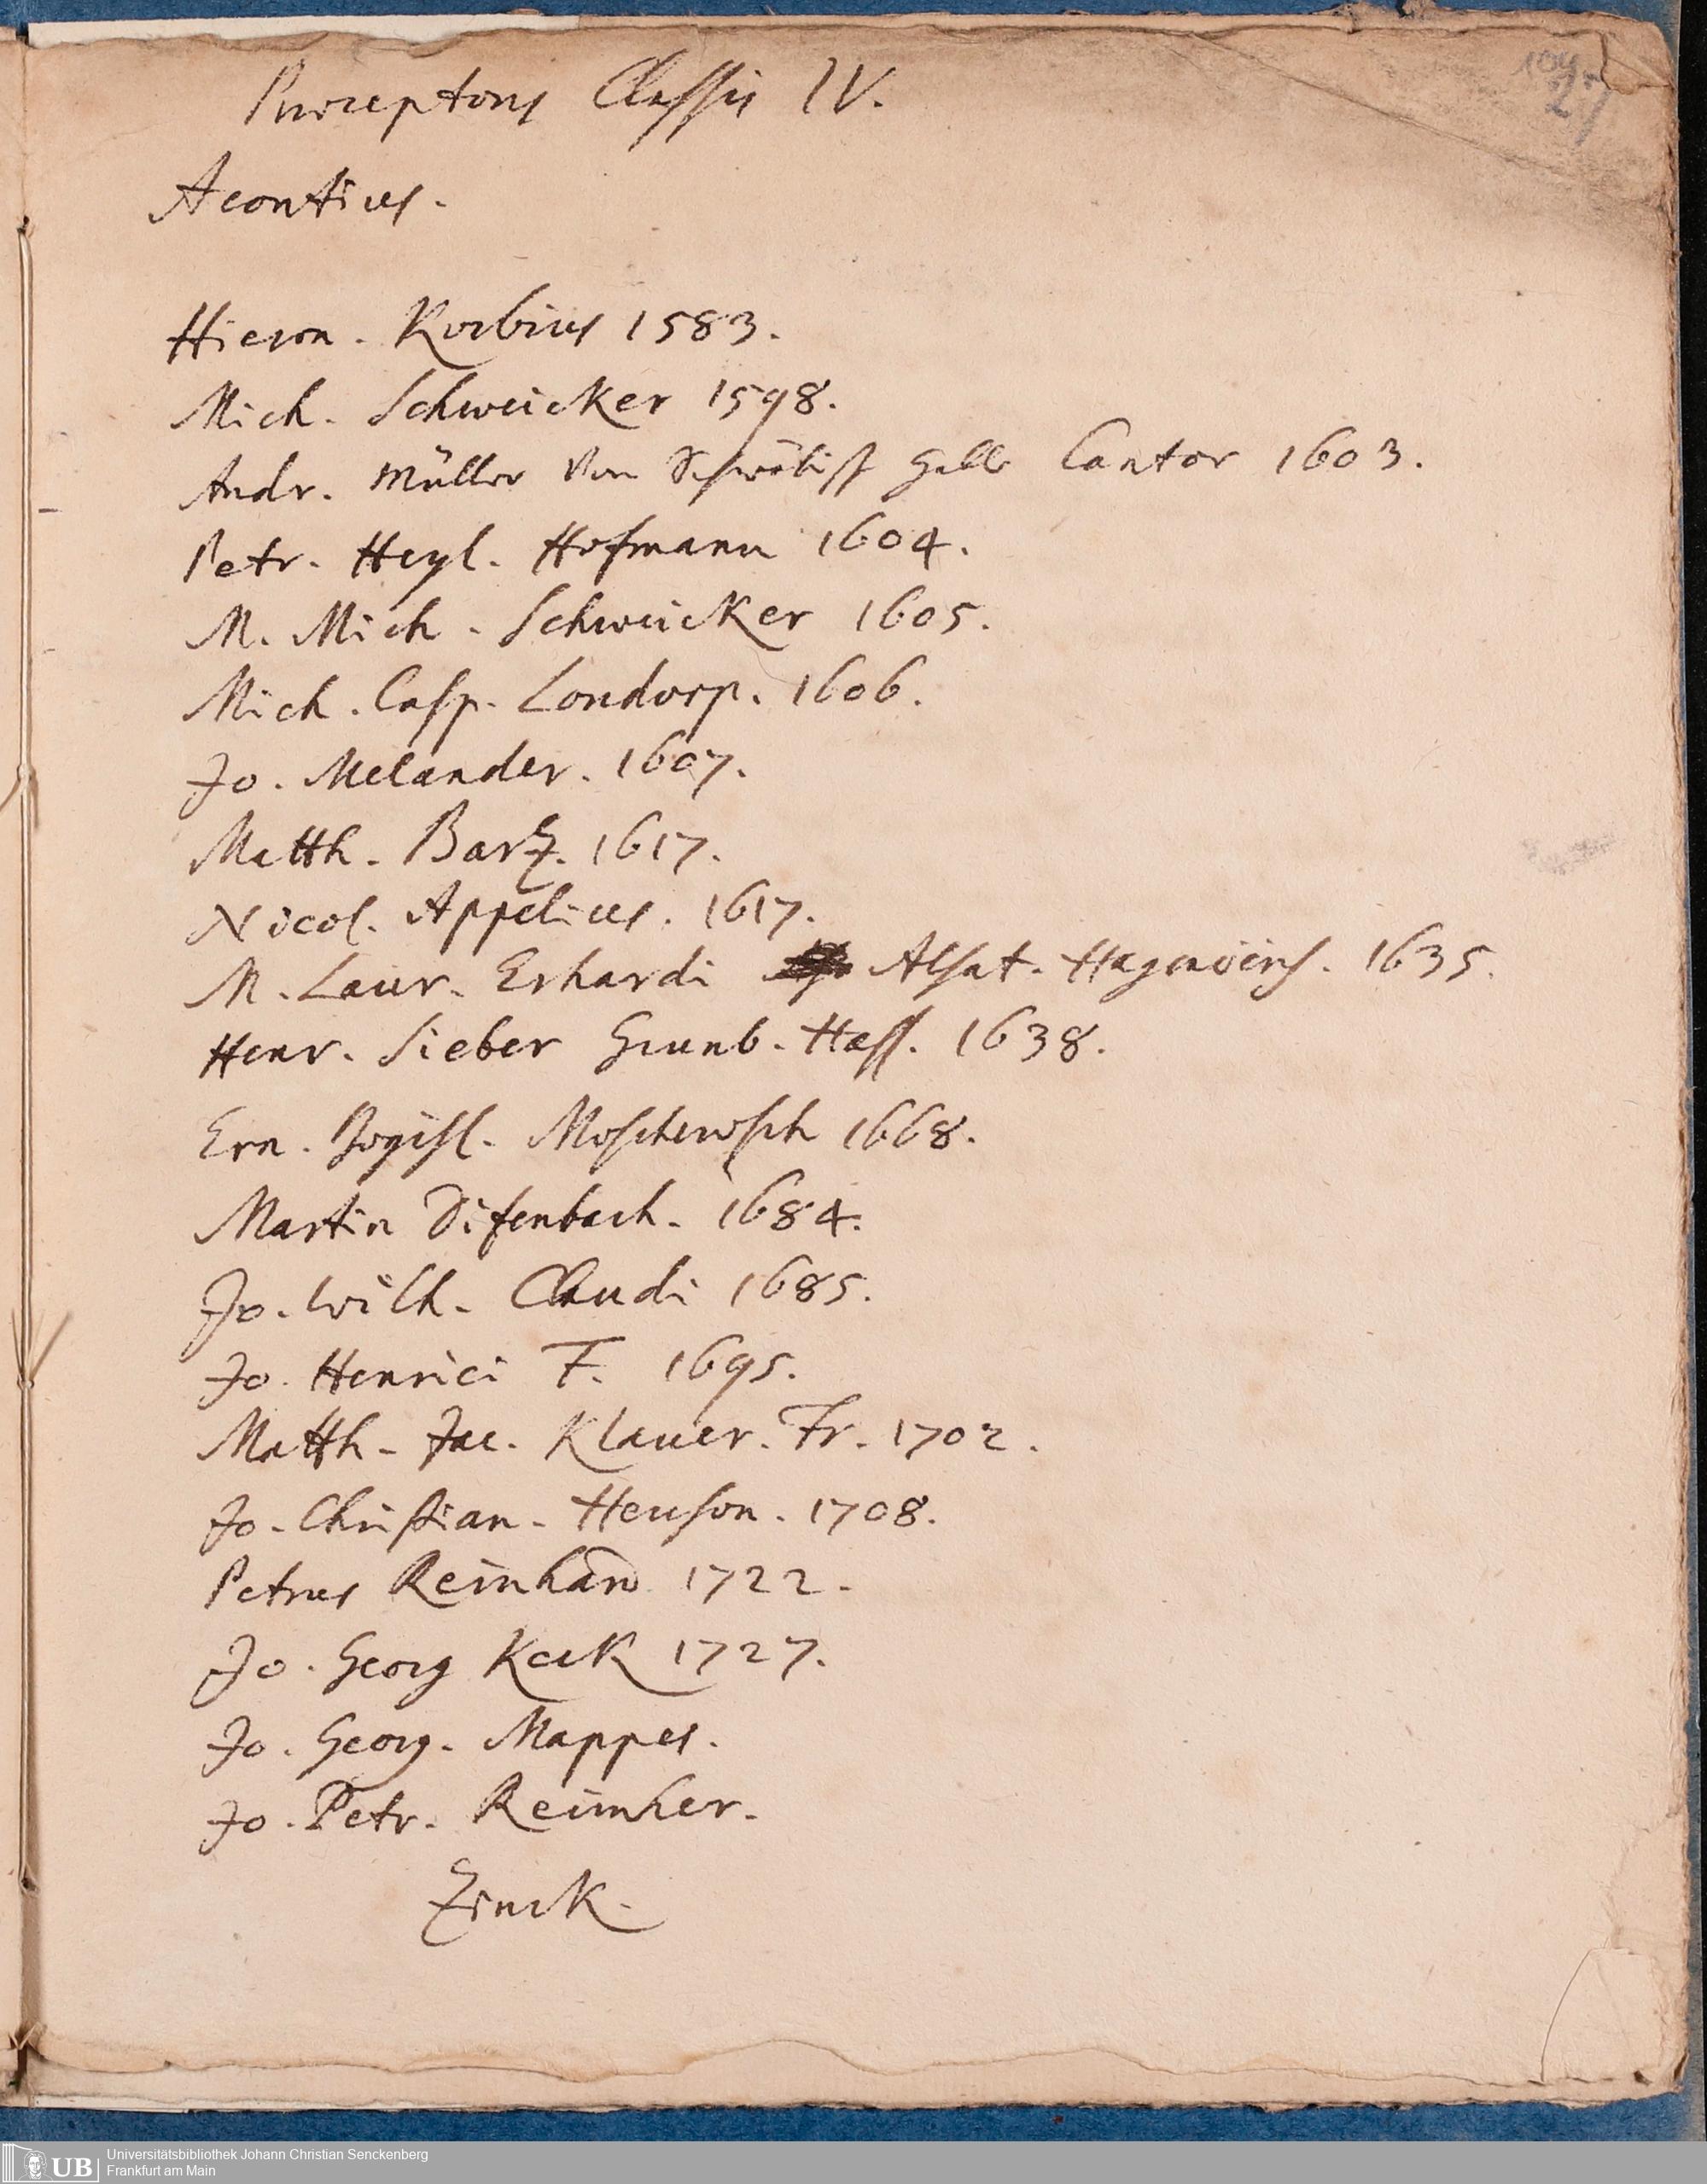 Praeceptores Classis IV.
Acontius.
Hieron. Korbius 1583.
Mich. Schweicker 1598.
Andr. Müller von Schwäbisch Halle Cantor 1603.
Petr. Heyl. Hofmann 1604.
M. Mich. Schweicker 1605.
Mich. Casp. Londorp. 1606.
Jo. Melander. 1607.
Matth. Bartz. 1617.
Nicol. Appelius. 1617.
M. Laur. Erhardi Alsat. Hagenoens. 1635.
Henr. Sieber Grunb. Hass. 1638.
Ern. Bogisl. Moscherosch 1668.
Martin Difenbach. 1684.
Jo. Wilh. Claudi 1685.
Jo. Henrici F. 1695.
Matth. Jac. Klauer. Fr. 1702.
Jo. Christian. Henson. 1708.
Petrus Reinhard 1722.
Jo. Georg Keck 1727.
Jo. Georg. Mappes.
Jo. Petr. Reimher.
Zinck.
UB Universitätsbibliothek Johann Christian Senckenberg
Frankfurt am Main